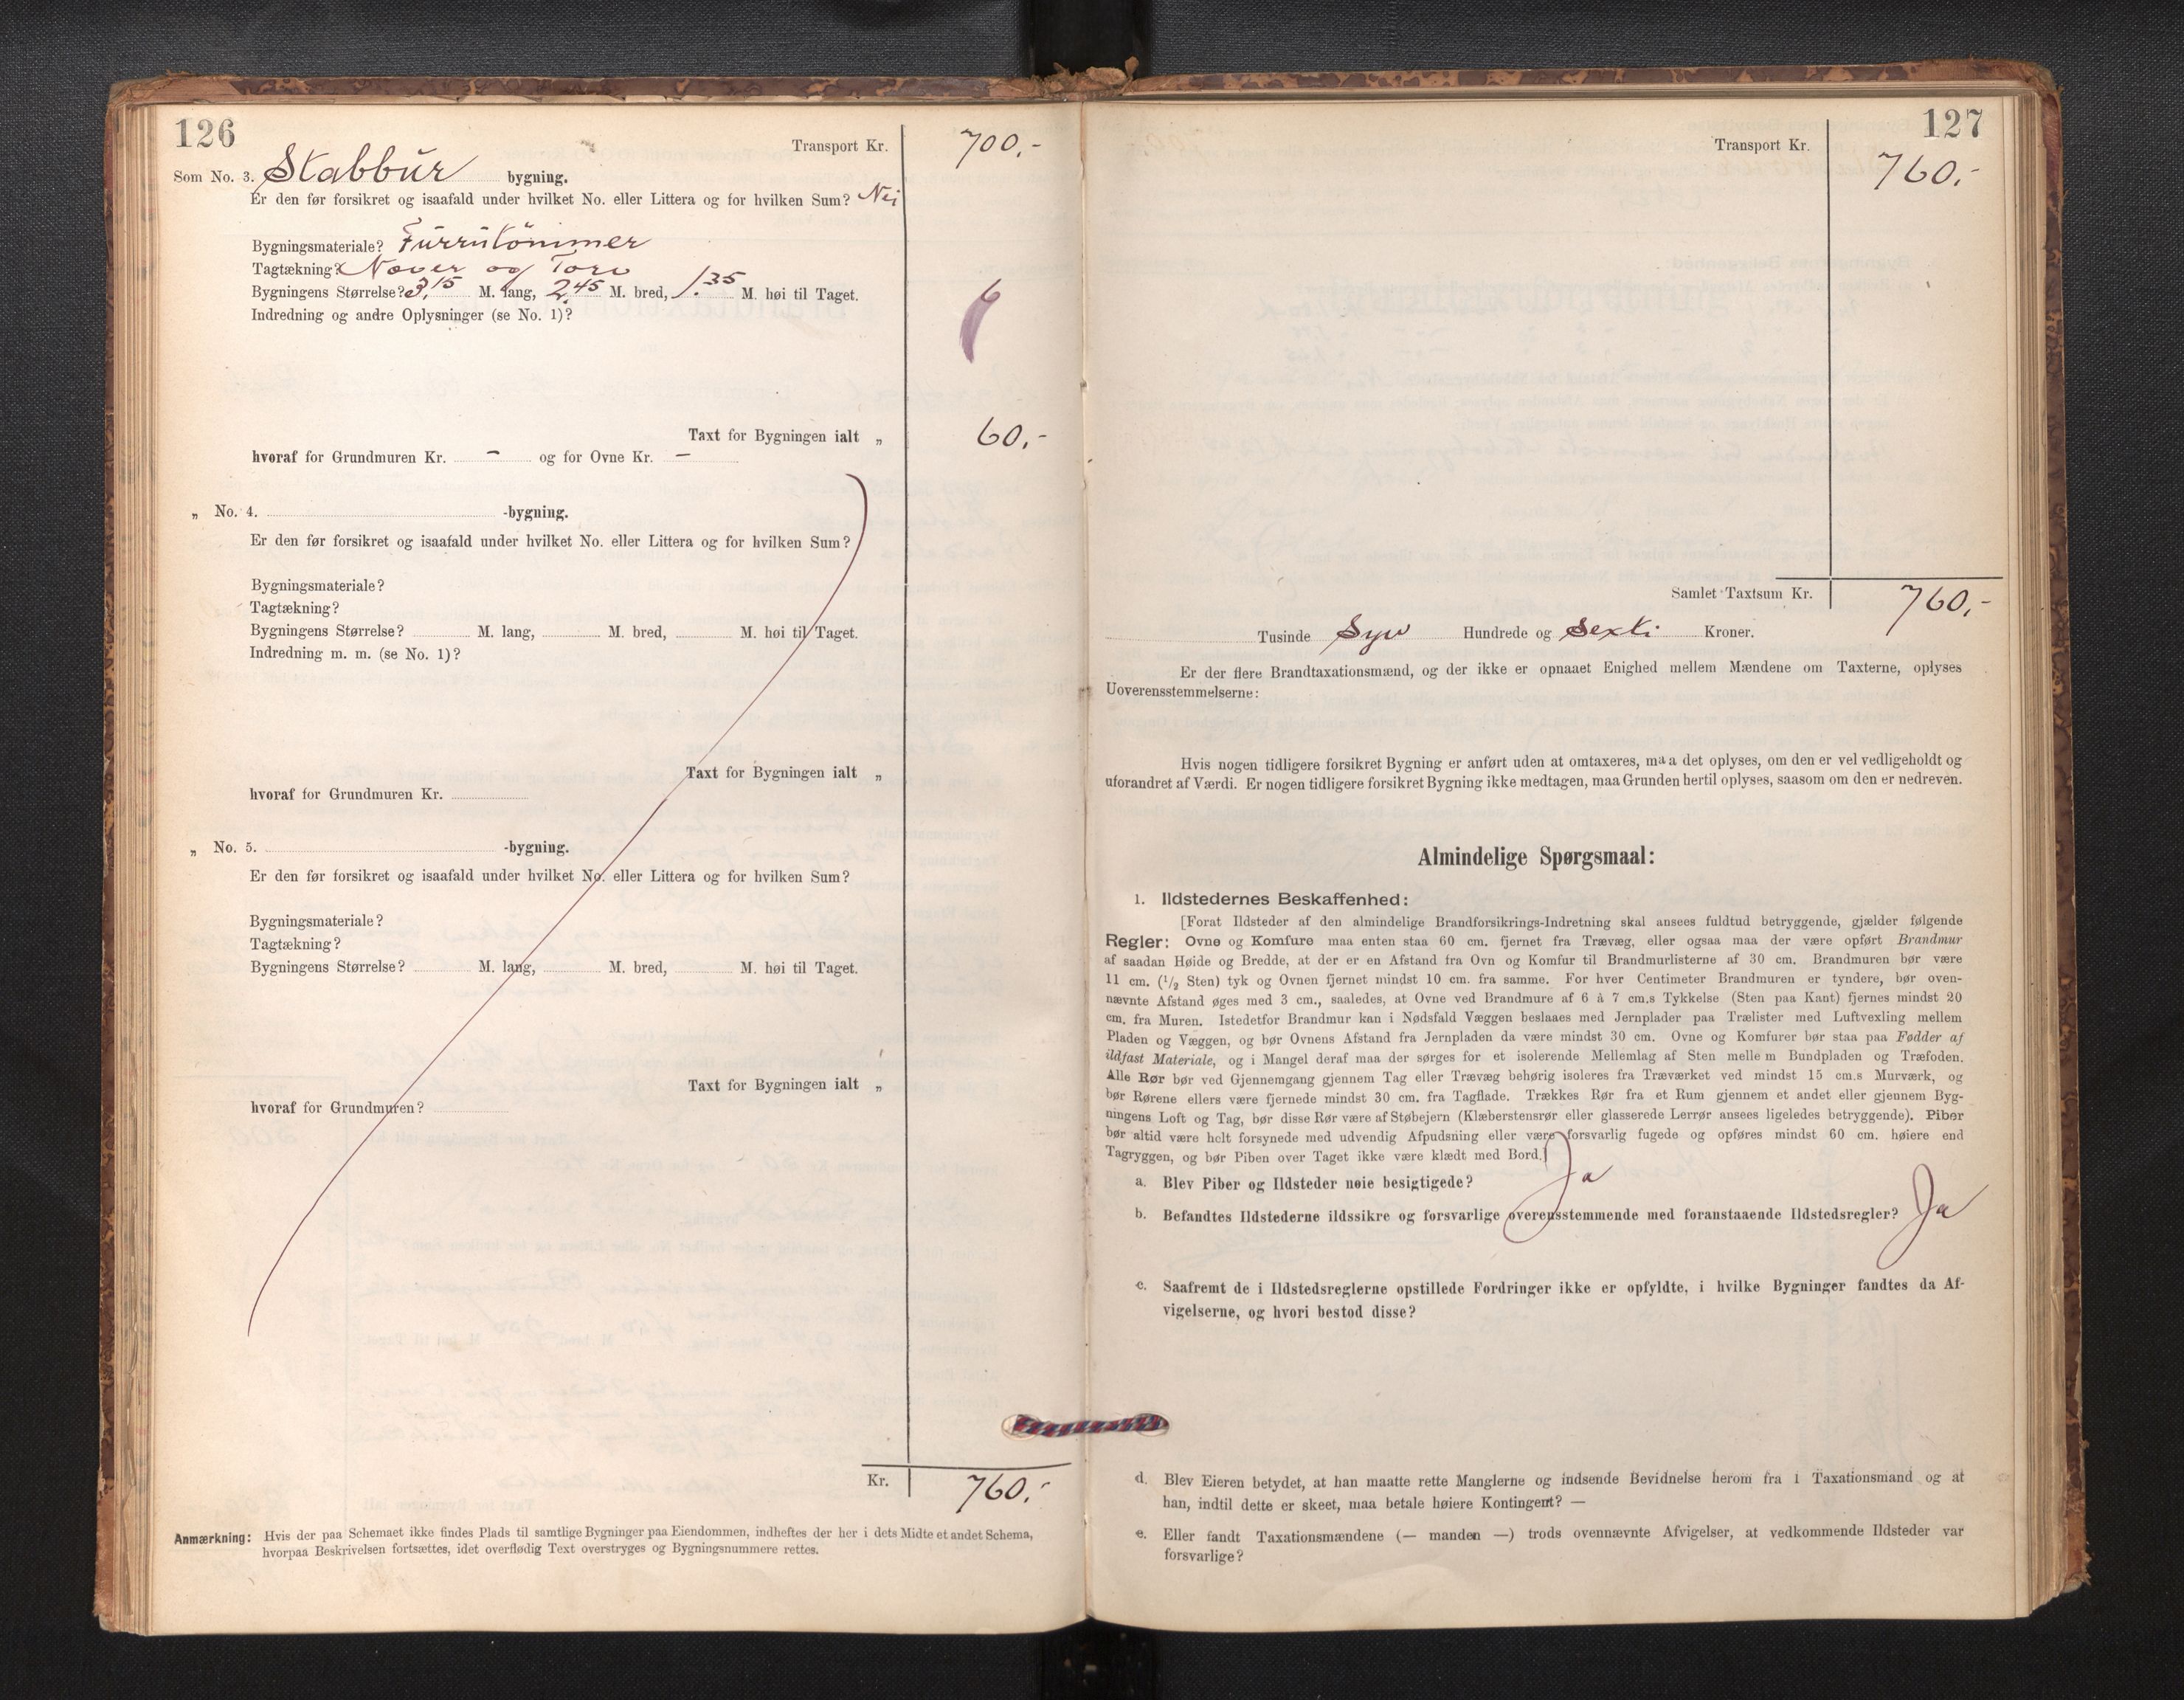 126
Transport Kr. 700,-
Som No. 3. Stabbúr bygning.
Er den før forsikret og isaafald under hvilket No. eller Littera og for hvilken Sum? Nei
Bygningsmateriale? Fúrrútömmer
Tagtækning? Næver og Torv
Bygningens Størrelse? 3,15 M. lang, 2,45 M. bred, 1,35 M. høi til Taget.
Indredning og andre Oplysninger (se No. 1)?
Taxt for Bygningen ialt „ 60,-
hvoraf for Grundmuren Kr. - og for Ovne Kr. -
„ No. 4. -bygning.
Er den før forsikret og isaafald under hvilket No. eller Littera og for hvilken Sum?
Bygningsmateriale?
Tagtækning?
Bygningens Størrelse? M. lang, M. bred, M. høi til Taget.
Indredning m. m. (se No. 1)?
Taxt for Bygningen ialt „
hvoraf for Grundmuren Kr.
„ No. 5. -bygning.
Er den før forsikret og isaafald under hvilket No. eller Littera og for hvilken Sum?
Bygningsmateriale?
Tagtækning?
Bygningens Størrelse? M. lang, M. bred, M. høi til Taget.
Taxt for Bygningen ialt „
hvoraf for Grundmuren?
Kr. 760,-
Anmærkning: Hvis der paa Schemaet ikke findes Plads til samtlige Bygninger paa Eiendommen, indheftes der her i dets Midte et andet Schema,
hvorpaa Beskrivelsen fortsættes, idet overflødig Text overstryges og Bygningsnummere rettes.
127
Transport Kr. 760,-
Samlet Taxtsum Kr. 760,-
Tusinde Syv Hundrede og Sexti Kroner.
Er der flere Brandtaxationsmænd, og der ikke er opnaaet Enighed mellem Mændene om Taxterne, oplyses
Uoverensstemmelserne:
Hvis nogen tidligere forsikret Bygning er anført uden at omtaxeres, maa det oplyses, om den er vel vedligeholdt og
uforandret af Værdi. Er nogen tidligere forsikret Bygning ikke medtagen, maa Grunden hertil oplyses, saasom om den er nedreven.
Almindelige Spørgsmaal:
1. Ildstedernes Beskaffenhed:
[Forat Ildsteder af den almindelige Brandforsikrings-Indretning skal ansees fuldtud betryggende, gjælder følgende
Regler: Ovne og Komfure maa enten staa 60 cm. fjernet fra Trævæg, eller ogsaa maa der være opført Brandmur
af saadan Høide og Bredde, at der er en Afstand fra Ovn og Komfur til Brandmurlisterne af 30 cm. Brandmuren bør være
11 cm. (1/2 Sten) tyk og Ovnen fjernet mindst 10 cm. fra samme. For hver Centimeter Brandmuren er tyndere, bør oven-
nævnte Afstand øges med 3 cm., saaledes, at Ovne ved Brandmure af 6 à 7 cm.s Tykkelse (Sten paa Kant) fjernes mindst 20
cm. fra Muren. Istedetfor Brandmur kan i Nødsfald Væggen beslaaes med Jernplader paa Trælister med Luftvexling mellem
Pladen og Væggen, og bør Ovnens Afstand fra Jernpladen da være mindst 30 cm. Ovne og Komfurer bør staa paa Fødder af
ildfast Materiale, og i Mangel deraf maa der sørges for et isolerende Mellemlag af Sten mellem Bundpladen og Træfoden.
Alle Rør bør ved Gjennemgang gjennem Tag eller Trævæg behørig isoleres fra Træværket ved mindst 15 cm.s Murværk, og
bør Rørene ellers være fjernede mindst 30 cm. fra Tagflade. Trækkes Rør fra et Rum gjennem et andet eller gjennem Byg-
ningens Loft og Tag, bør disse Rør være af Støbejern (Klæberstensrør eller glasserede Lerrør ansees ligeledes betryggende). Piber
bør altid være helt forsynede med udvendig Afpudsning eller være forsvarlig fugede og opføres mindst 60 cm. høiere end
Tagryggen, og bør Piben over Taget ikke være klædt med Bord.]
a. Blev Piber og Ildsteder nøie besigtigede? Ja
b. Befandtes Ildstederne ildssikre og forsvarlige overensstemmende med foranstaaende Ildstedsregler? Ja
c. Saafremt de i Ildstedsreglerne opstillede Fordringer ikke er opfyldte, i hvilke Bygninger fandtes da Af-
vigelserne, og hvori bestod disse?
d. Blev Eieren betydet, at han maatte rette Manglerne og indsende Bevidnelse herom fra 1 Taxationsmand og at
han, indtil dette er skeet, maa betale høiere Kontingent? —
e. Eller fandt Taxationsmændene (— manden —) trods ovennævnte Afvigelser, at vedkommende Ildsteder var
forsvarlige?